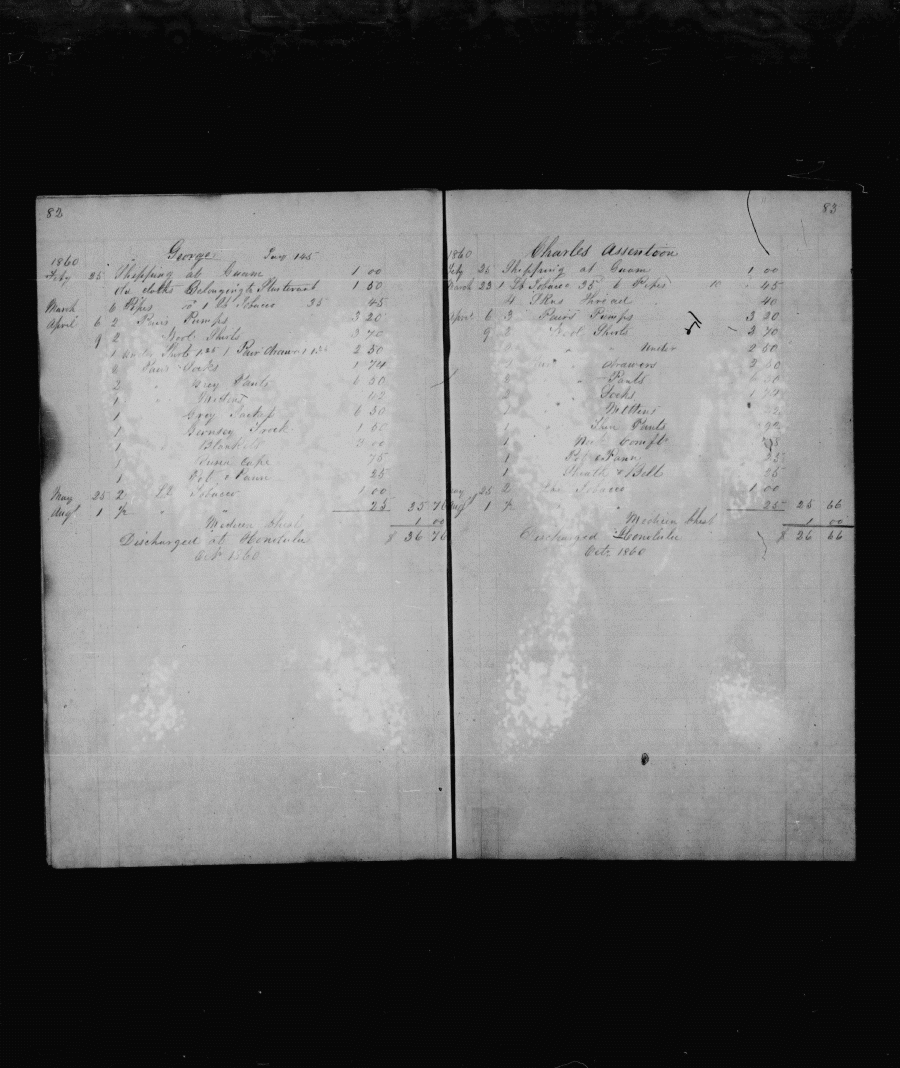 82
George
1860
Feby 25 Shipping at Guam 1 00
do cloths Belonging to 1 50
March 6 Pipes & 1 lb Tobacco 35 45
April 6 2 Pairs Pumps 3 20
9 2 Wool Shirts 3 70
1 under Shirts 1 Pair drawers 2 50
2 Pairs Socks 1 74
2 Grey Pants 6 50
1 Mittens 42
1 Grey Jacket 6 50
1 Gernsey Frock 1 50
1 Blanket 3 00
1 Cape 75
1 Pot & Pann 25
May 25 2 Lb Tobacco 1 00
Augt 1 1/2 " " 25 35 76
Medicin Chest 1 00
Discharged at Honolulu $ 36 76
Oct 1860
83
Charles Assentoon
1860
Feby 25 Shipping at Guam 1 00
March 23 1 Lb Tobacco 35 6 Pipes 10 45
4 Skns Thread 40
April 6 3 Pairs Pumps 3 20
9 2 Wool Shirts 3 70
" " Under 2 50
" " drawers 2 50
" Pants
" Socks 1 74
1 Mittens 42
1 Thin Pants
1 Comft
1 Pot & Pann 25
1 Sheath & Belt 25
May 25 2 Lbs Tobacco 1 00
Augt 1 1/2 " 25 25 66
Medicin Chest 1 00
Discharged Honolulu $ 26 66
Oct 1860